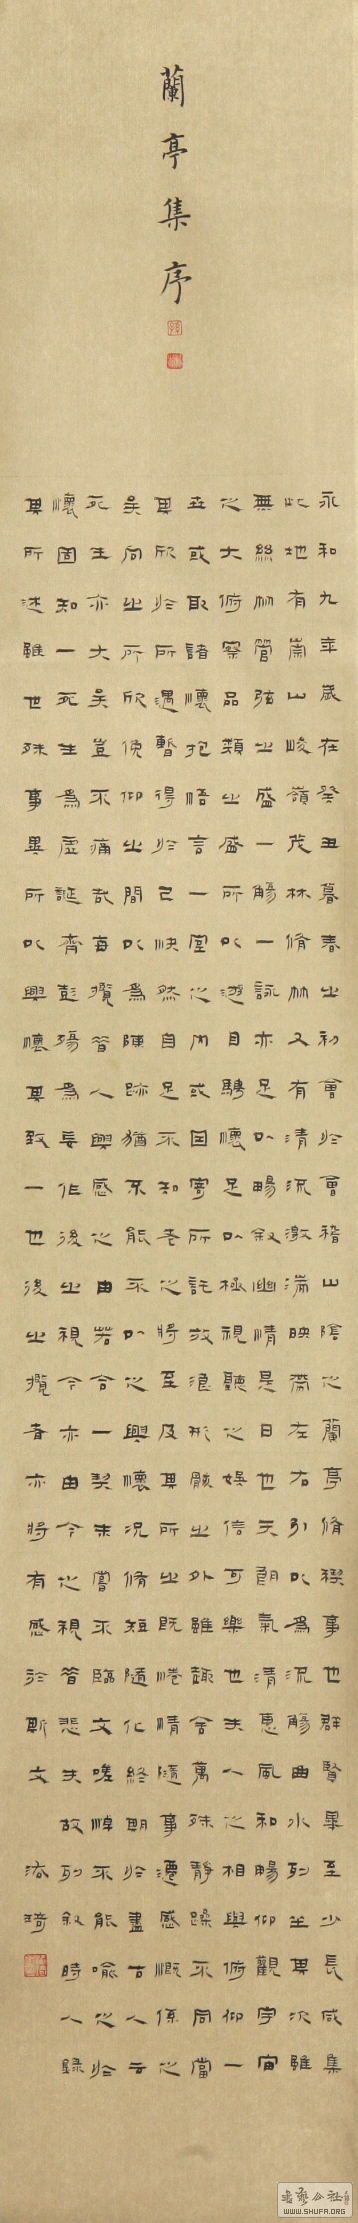 蘭亭集序
永和九年歲在癸丑暮春之初會於會稽山陰之蘭亭脩禊事也群賢畢至少長咸集
此地有崇山峻嶺茂林脩竹又有清流激湍映帶左右引以為流觴曲水列坐其次雖
無絲竹管弦之盛一觴一詠亦足以暢敘幽情是日也天朗氣清惠風和暢仰觀宇宙
之大俯察品類之盛所以遊目騁懷足以極視聽之娛信可樂也夫人之相與俯仰一
世或取諸懷抱悟言一室之內或因寄所託放浪形骸之外雖趣舍萬殊靜躁不同當
其欣於所遇暫得於己快然自足不知老之將至及其所之既惓情隨事遷感慨係之
矣向之所欣俛仰之間以為陳跡猶不能不以之興懷況脩短隨化終期於盡古人云
死生亦大矣豈不痛哉每攬昔人興感之由若合一契未嘗不臨文嗟悼不能喻之於
懷固知一死生為虛誕齊彭殤為妄作後之視今亦由今之視昔悲夫故列敘時人錄
其所述雖世殊事異所以興懷其致一也後之攬者亦將有感於斯文
書藝公社
WWW.SHUFA.ORG